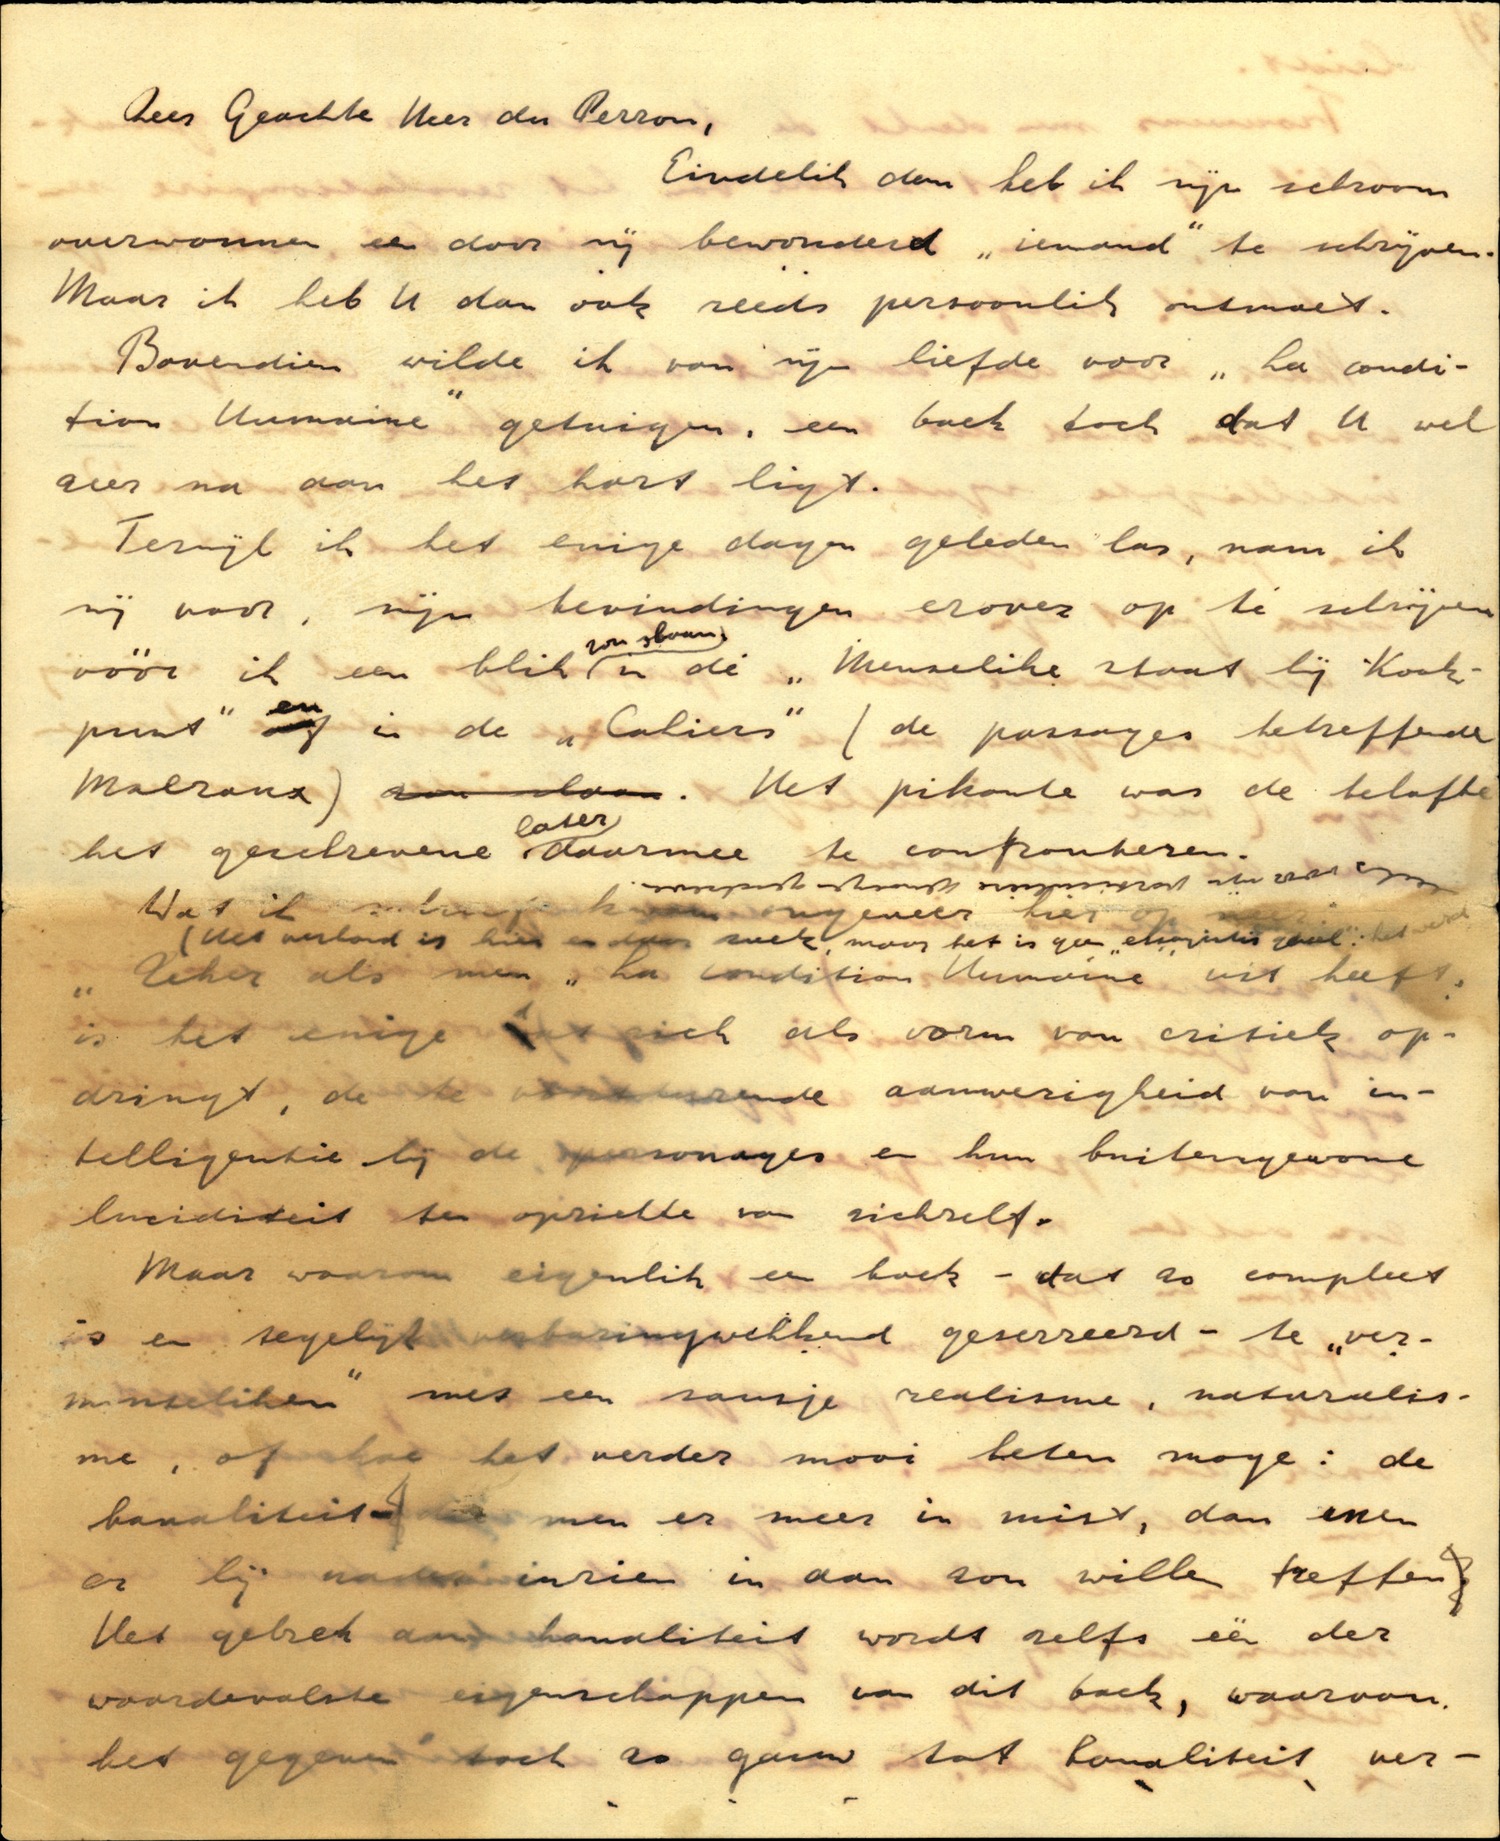 Zeer Geachte Heer du Perron,
Eindelik dan heb ik mijn schroom
overwonnen een door mij bewonderd „iemand” te schrijven.
Maar ik heb U dan óók reeds persoonlik ontmoet.
Bovendien wilde ik van mijn liefde voor „La condi-
tion Humaine” getuigen, een boek toch dat U wel
zeer na aan het hart ligt.
Terwijl ik het enige dagen geleden las, nam ik
mij voor, mijn bevindingen erover op te schrijven
vóór ik een blik zou slaan in de „Menselike staat bij Kook-
punt” en in de „Cahiers” (de passages betreffende
Malraux) zou slaan. Het pikante was de belofte
het geschrevene later daarmee te confronteren.
Wat ik schreef kwam ongeveer hier op neer:
(Het verband is hier en daar zoek, maar het is geen
„Zeker als men „La condition Humaine” uit heeft,
is het enige dat zich als vorm van critiek op-
dringt, de te voortdurende aanwezigheid van in-
telligentie bij de personages en hun buitengewone
luciditeit ten opzichte van zichzelf.
Maar waarom eigenlik een boek - dat zo compleet
is en tegelijk verbazingwekkend geserreerd - te „ver-
menseliken” met een sausje realisme, naturalis-
me, of hoe het verder mooi heten moge: de
banaliteit die men er meer in mist, dan men
er bij nader inzien in aan zou willen treffen.
Het gebrek aan banaliteit wordt zelfs één der
waardevolste eigenschappen van dit boek, waarvan
het gegeven toch zo gauw tot banaliteit ver-